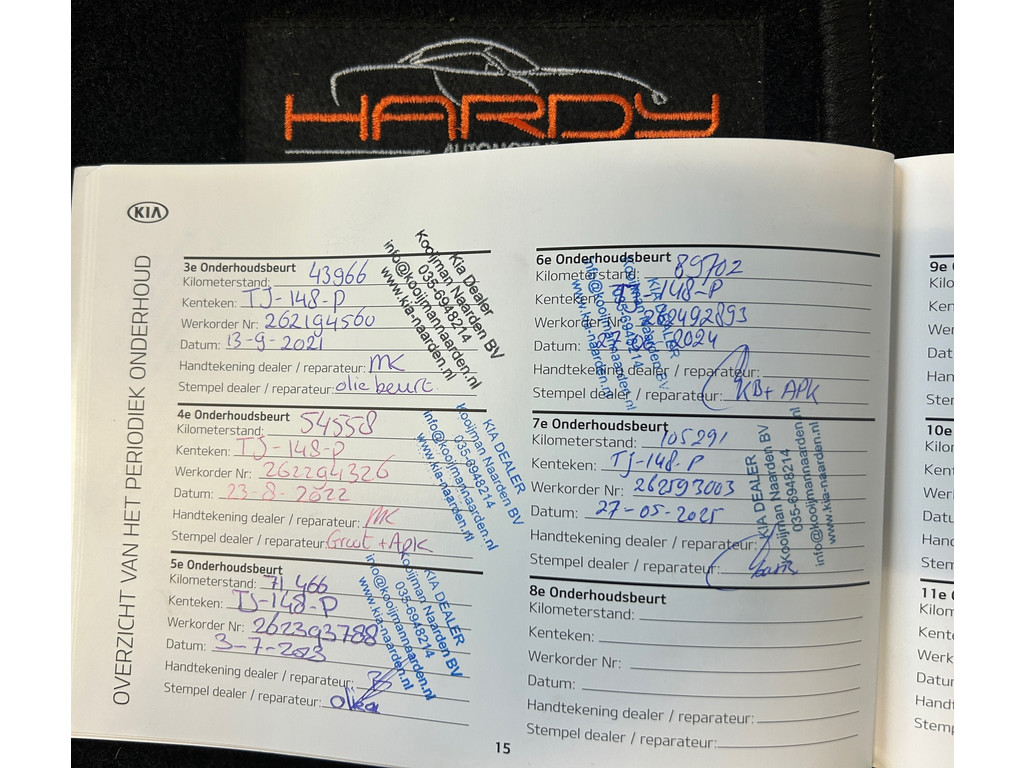 HARDY
AUTOMOTIVE
KIA
OVERZICHT VAN HET PERIODIEK ONDERHOUD
3e Onderhoudsbeurt
Kilometerstand: 43966
Kenteken: TJ-148-P
Werkorder Nr: 262194560
Datum: 13-9-2021
Handtekening dealer / reparateur: MK
Stempel dealer / reparateur: olie beurt.
Kia Dealer
Kooijman Naarden BV
035-6948214
info@kooijmannaarden.nl
www.kia-naarden.nl
4e Onderhoudsbeurt
Kilometerstand: 54558
Kenteken: TJ-148-P
Werkorder Nr: 262294326
Datum: 23-8-2022
Handtekening dealer / reparateur: MK
Stempel dealer / reparateur: Groot + APK
KIA DEALER
Kooijman Naarden BV
035-6948214
info@kooijmannaarden.nl
www.kia-naarden.nl
5e Onderhoudsbeurt
Kilometerstand: 71466
Kenteken: TJ-148-P
Werkorder Nr: 262393788
Datum: 3-7-2023
Handtekening dealer / reparateur:
Stempel dealer / reparateur:
KIA DEALER
Kooijman Naarden BV
035-6948214
info@kooijmannaarden.nl
www.kia-naarden.nl
6e Onderhoudsbeurt
Kilometerstand: 89702
Kenteken: TJ-148-P
Werkorder Nr: 262492893
Datum: 2024
Handtekening dealer / reparateur:
Stempel dealer / reparateur: KB+ APK
KIA DEALER
Kooijman Naarden BV
035-6948214
info@kooijmannaarden.nl
www.kia-naarden.nl
7e Onderhoudsbeurt
Kilometerstand: 105291
Kenteken: TJ-148-P
Werkorder Nr: 262593003
Datum: 27-05-2025
Handtekening dealer / reparateur:
Stempel dealer / reparateur:
KIA DEALER
Kooijman Naarden BV
035-6948214
info@kooijmannaarden.nl
www.kia-naarden.nl
8e Onderhoudsbeurt
Kilometerstand:
Kenteken:
Werkorder Nr:
Datum:
Handtekening dealer / reparateur:
Stempel dealer / reparateur:
15
9e
Kilo
Ken
Wer
Dat
Han
Ste
10e
Kilo
Kent
Wer
Datu
Hand
Stem
11e
Kilom
Kente
Werk
Datum
Handt
Stemp